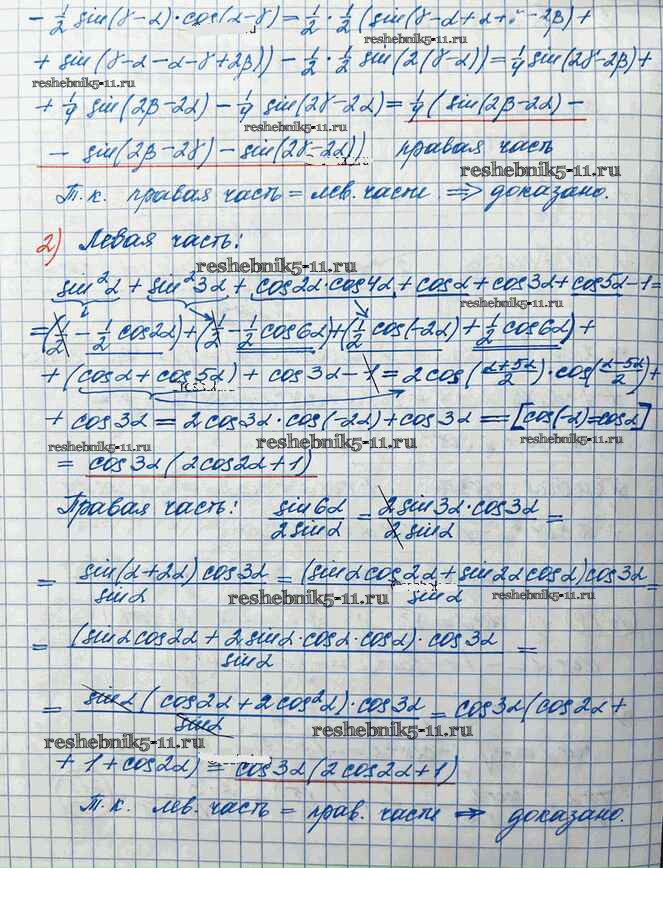 − 1/2 sin(γ−α)·cos(α−γ) = 1/2 · 1/2 (sin(γ−α+α+γ−2β) +
+ sin(γ−α−α−γ+2β)) − 1/2 · 1/2 sin(2(γ−α)) = 1/4 sin(2γ−2β) +
reshebnik5-11.ru reshebnik5-11.ru
+ 1/4 sin(2β−2α) − 1/4 sin(2γ−2α) = 1/4 ( sin(2β−2α) −
reshebnik5-11.ru
− sin(2β−2γ) − sin(2γ−2α)) правая часть
reshebnik5-11.ru
Т.к. правая часть = лев. части ⇒ доказано.
2) Левая часть:
reshebnik5-11.ru
sin²α + sin²3α + cos2α·cos4α + cosα + cos3α + cos5α − 1 =
reshebnik5-11.ru
= (1/2 − 1/2 cos2α) + (1/2 − 1/2 cos6α) + (1/2 cos(−2α) + 1/2 cos6α) +
+ (cosα + cos5α) + cos3α − 1 = 2cos((α+5α)/2)·cos((α−5α)/2) +
+ cos3α = 2cos3α·cos(−2α) + cos3α == [cos(−α)=cosα]
reshebnik5-11.ru reshebnik5-11.ru reshebnik5-11.ru
= cos3α (2cos2α+1)
Правая часть: sin6α / 2sinα = 2sin3α·cos3α / 2sinα =
= sin(α+2α) cos3α / sinα = (sinα cos2α + sin2α cosα) cos3α / sinα =
reshebnik5-11.ru reshebnik5-11.ru
= (sinα cos2α + 2sinα·cosα·cosα)·cos3α / sinα =
= sinα (cos2α + 2cos²α)·cos3α / sinα = cos3α (cos2α +
reshebnik5-11.ru reshebnik5-11.ru
+ 1 + cos2α) = cos3α (2cos2α+1)
Т.к. лев. часть = прав. части ⇒ доказано.